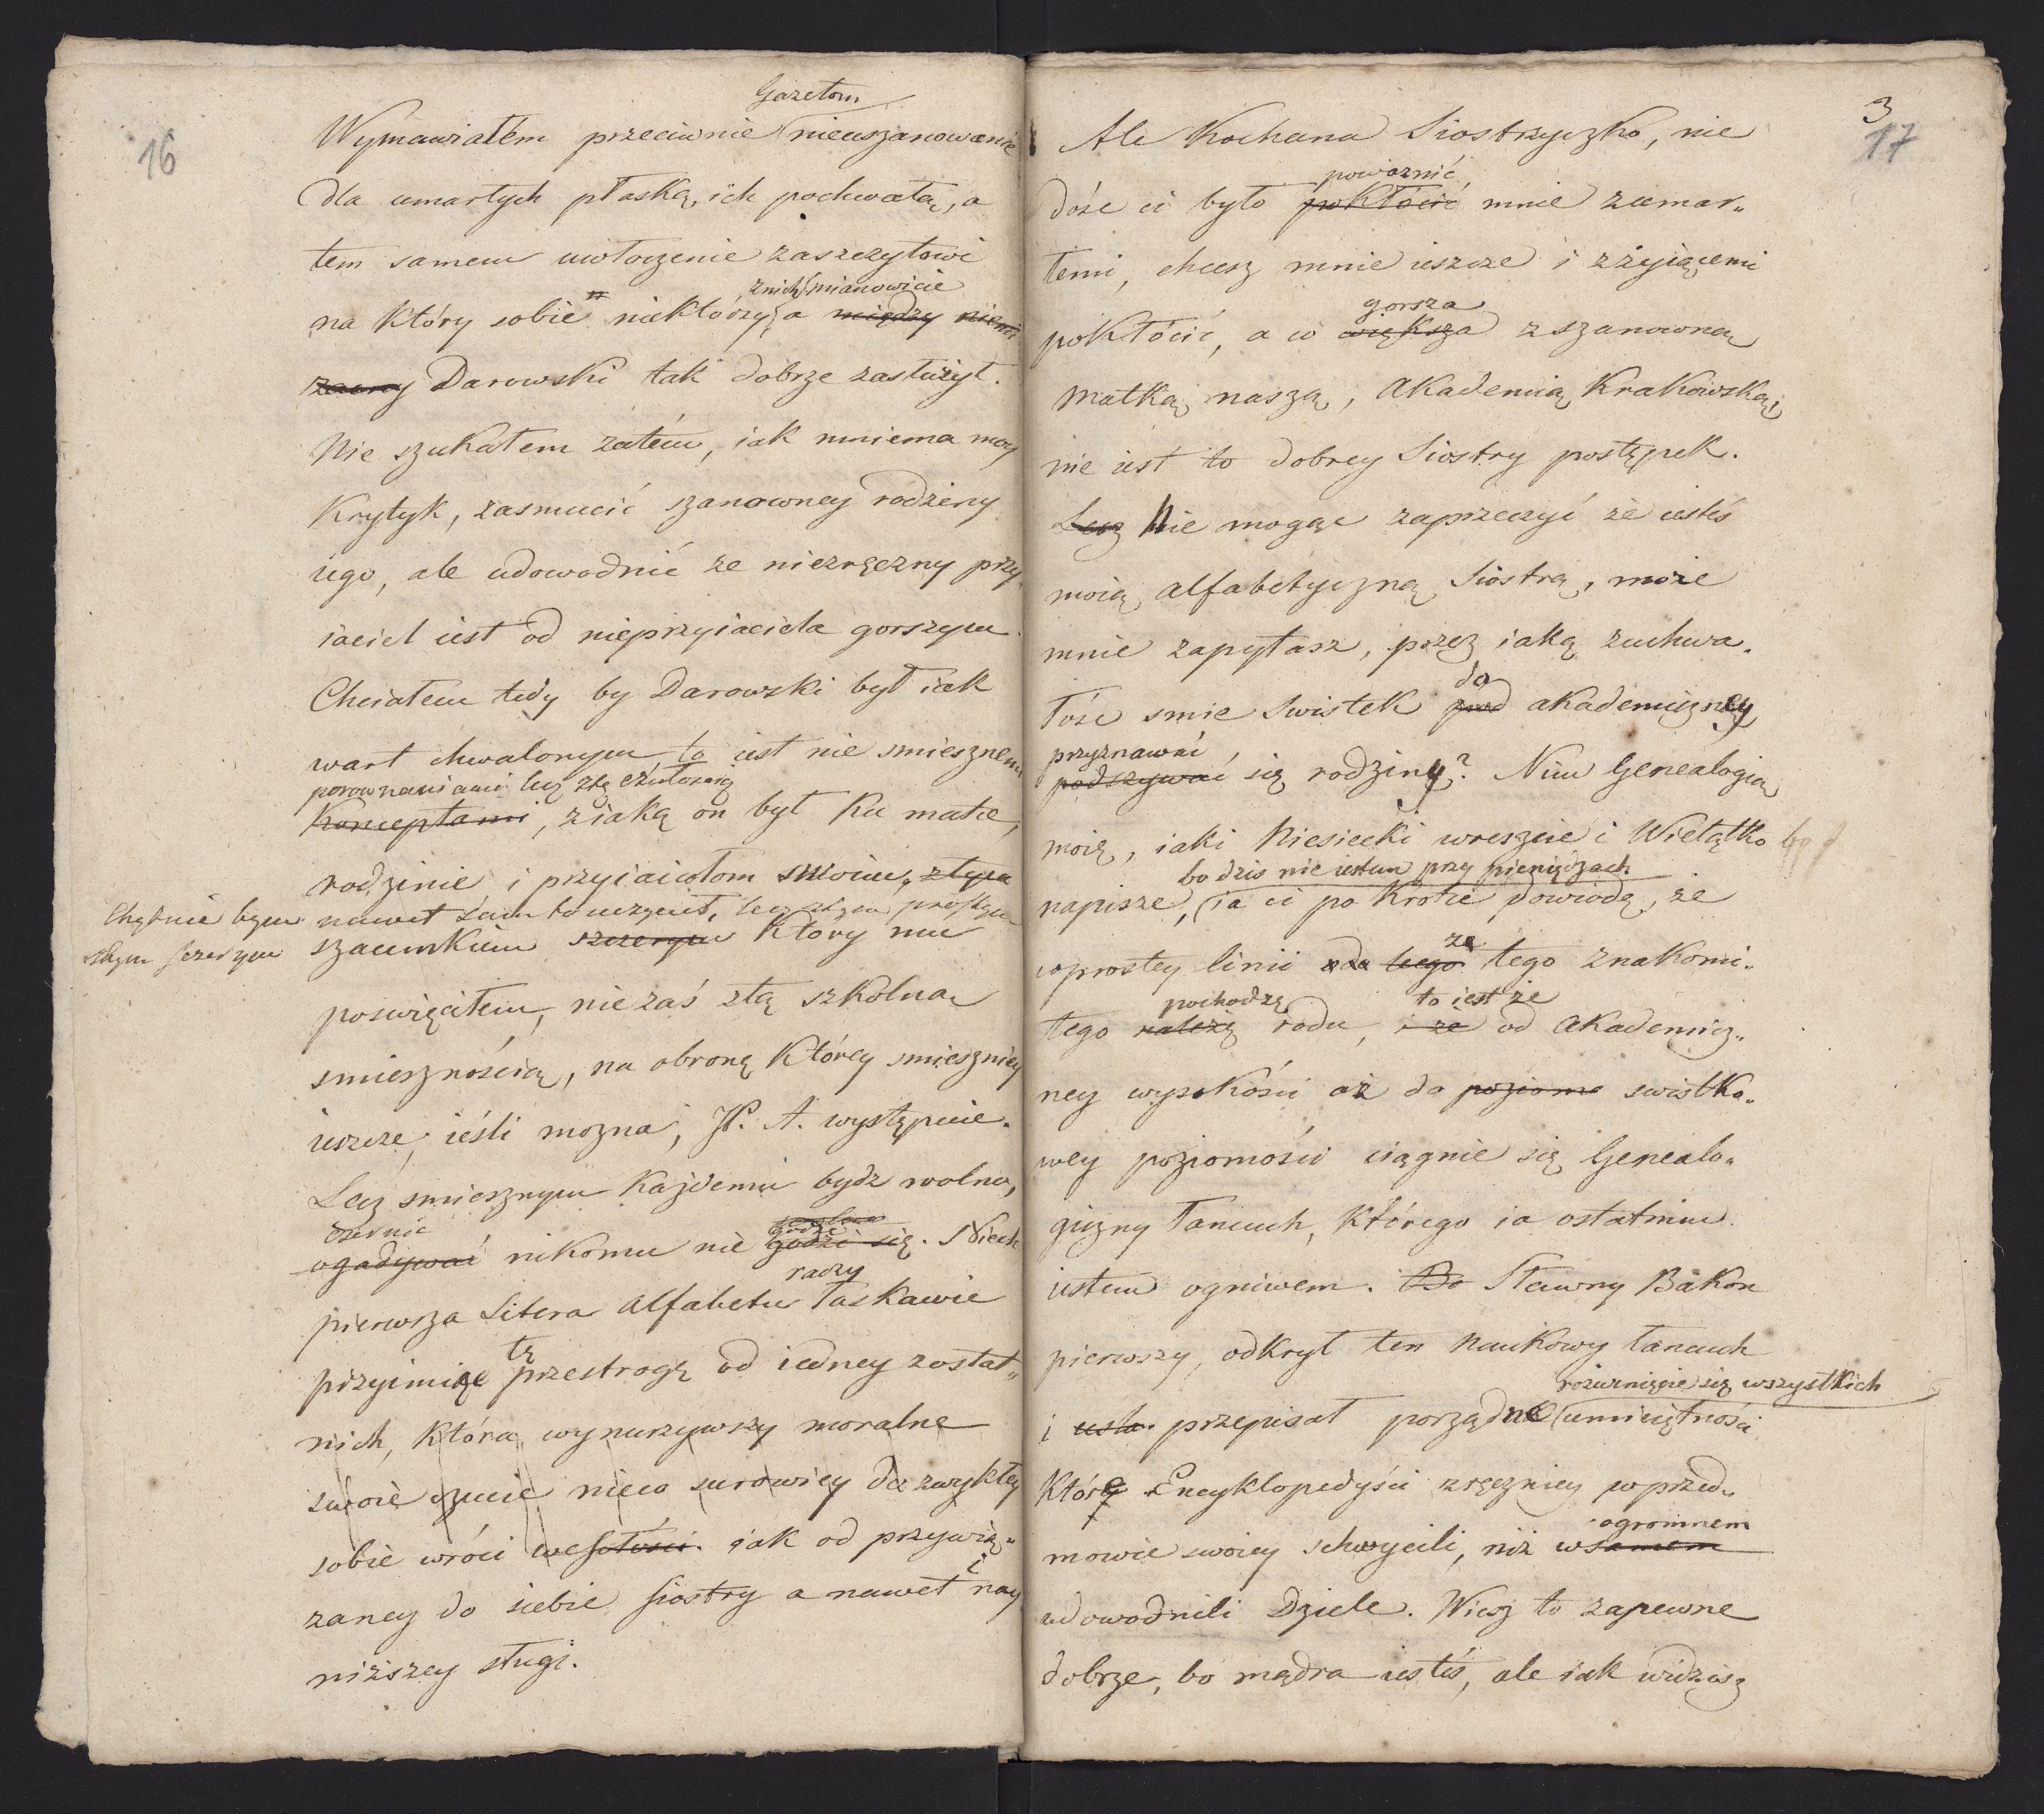 16
Gazetom
Wymawiałem przeciwnie nieuszanowanie
dla umarłych płaską ich pochwałą, a
tem samem uwłoczenie zaszczytowi
znich mianowicie
na który sobie niektórzy, a między niemi
zacny Darowski tak dobrze zasłużył.
Nie szukałem zatém, iak mniema moy
Krytyk, zasmucić szanowney rodziny
iego, ale udowodnić że niezręczny przy„
iaciel iest od nieprzyiaciela gorszym.
Chciałem tedy by Darowski był iak
wart chwalonym to iest nie smiesznemi
porownaniami lecz tą czułoscią
Konceptami, z iaką on był Ku matce,
rodzinie i przyiaciołom swoim, z tym
Chętnie bym nawet sam to uczynił, lecz z tym prostym
z tym szczerym szacunkiem szczerym Który mu
poswięciłem, nie zaś z tą szkolną
smiesznością, na obronę Którey smieszniey
ieszcze, ieśli można, JP. A. występuie.
Lecz smiesznym Każdemu bydz wolno,
czernic
ogadywać nikomu nie godzi się. Niech
raczy
pierwsza Litera Alfabetu łaskawie
tę
przyimie przestrogę od iedney zostat„
nich, Która wynurzywszy moralne
swoie czucie nieco surowiey do zwykłey
sobie wróci wesołości. iak od przywią„
i
zaney do siebie siostry a nawet nay
niższey sługi.
3
17
Ale Kochana Siostrzyczko, nie
powaznić
dość ci było pokłócić mnie zumar„
łemi, chcesz mnie ieszcze i zżyiącemi
gorsza
pokłócić, a co większa z szanowną
Matką naszą, Akademią Krakowską;
nie iest to dobrey Siostry postępek.
Lecz Nie mogąc zaprzeczyć że iesteś
moią alfabetyczną Siostrą, może
mnie zapytasz, przez iaką zuchwa„
do
łość smie Swistek pod akademiczney
przyznawać
podszywać się rodziny? Nim Genealogią
moię, iaki Niesiecki wreszcie i Wielątko
bo dzis nie iestem przy pieniądzach
napisze, ia ci po Krotce dowiodę, że
ze
wprostey linii od tego tego znakomi„
pochodzę to iest że
tego należę rodu, i że od Akademicz„
ney wysokości aż do poziome swistko„
wey poziomości ciągnie się Genealo„
giczny łancuch, Którego ia ostatnim
iestem ogniwem. Bo Sławny Bakon
pierwszy, odkrył ten Naukowy łancuch
rozwinięcie się wszystkich
i przepisał porządne umieiętności
Które Encyklopedyści zręczniey wprzed„
mowie swoiey schwycili, niż w samem
ogromnem
udowodnili Dziele. Wiesz to zapewne
dobrze, bo mądra iesteś, ale iak widzisz